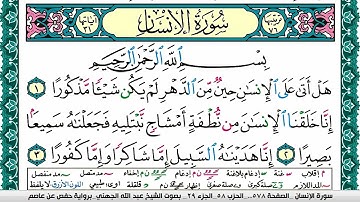 سُورَةُ الإِنسَانِ
بِسْمِ اللَّهِ الرَّحْمَٰنِ الرَّحِيمِ
هَلْ أَتَىٰ عَلَى الْإِنسَٰنِ حِينٌ مِّنَ الدَّهْرِ لَمْ يَكُن شَيْـًٔا مَّذْكُورًا ١
إِنَّا خَلَقْنَا الْإِنسَٰنَ مِن نُّطْفَةٍ أَمْشَاجٍ نَّبْتَلِيهِ فَجَعَلْنَٰهُ سَمِيعًۢا
بَصِيرًا ٢ إِنَّا هَدَيْنَٰهُ السَّبِيلَ إِمَّا شَاكِرًا وَإِمَّا كَفُورًا ٣
سورة الإنسان . الصفحة ٥٧٨ . الحزب ٥٨ . الجزء ٢٩ . بصوت الشيخ عبد الله الجهني . برواية حفص عن عاصم